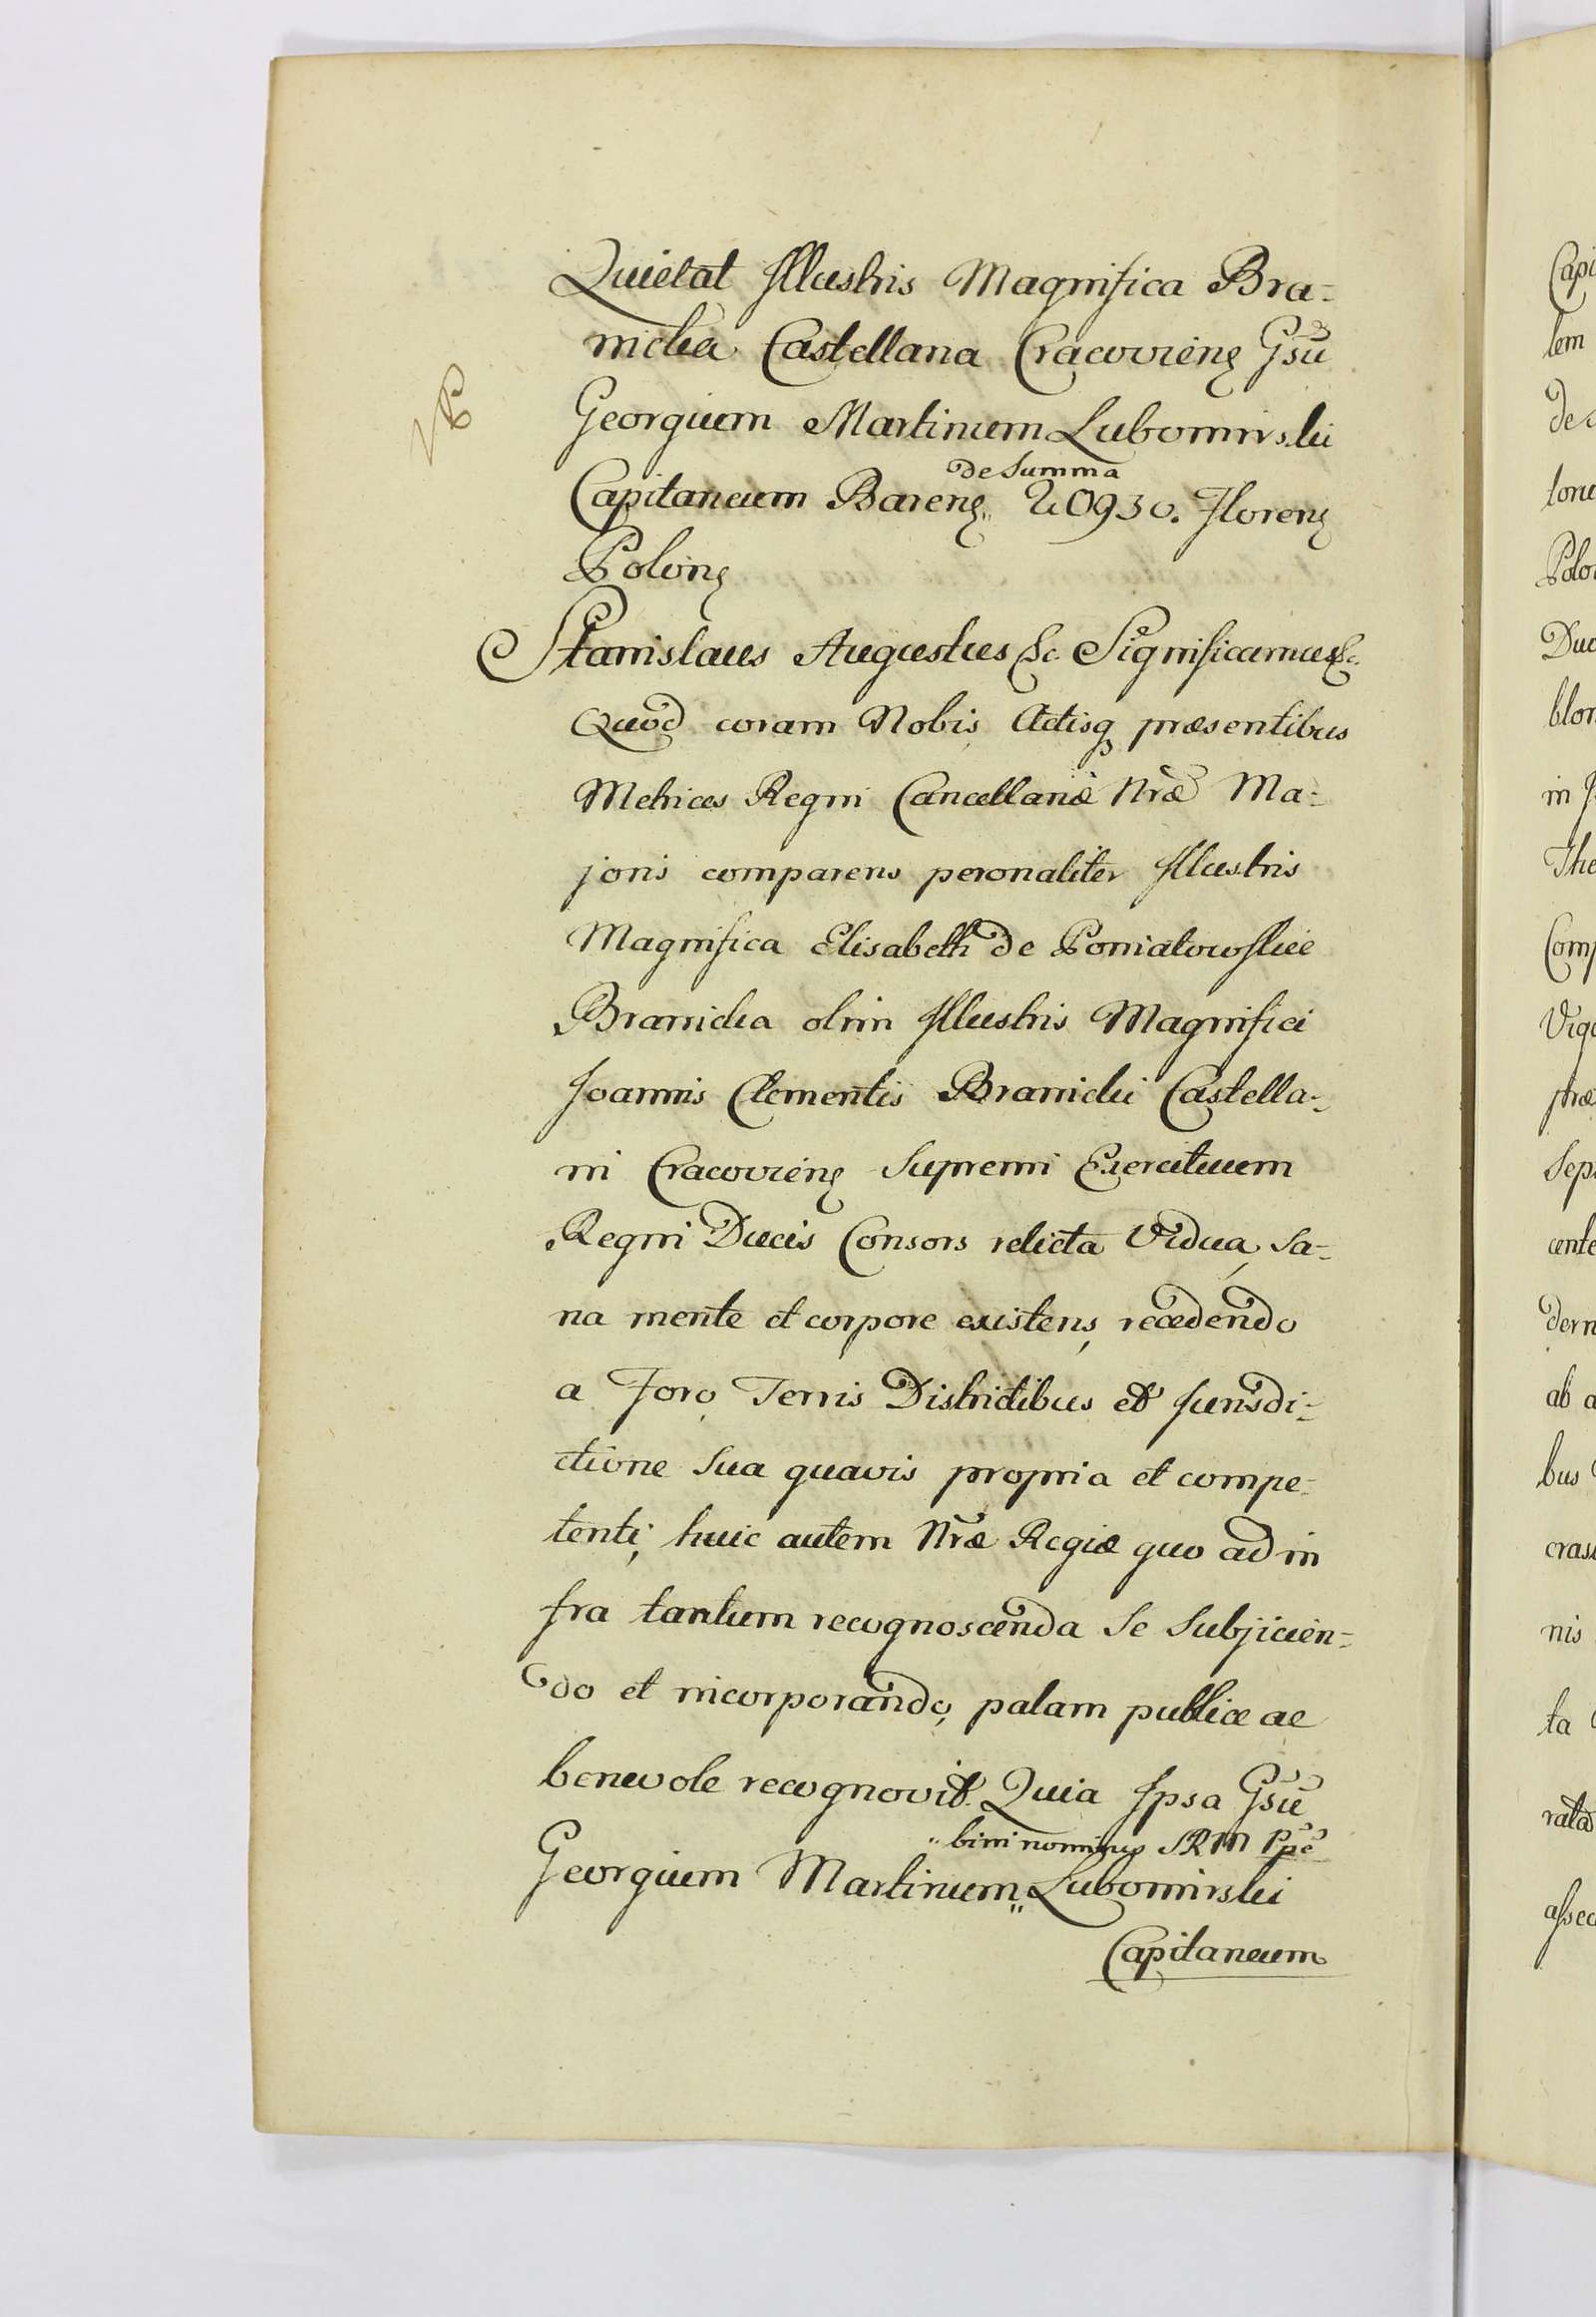 Quietat Illustris Magnifica Bra-
nicka Castellana Cracovien̄ Gsū
Georgium Martinum Lubomirski
de Summa
Capitaneum Baren̄ 20930. Floren̄
Polon̄
Stanislaus Augustus &c. Significamus &c.
Quod coram Nobis Actisq̨ præsentibus
Metrices Regni Cancellariæ Nræ Ma-
joris comparens peronaliter Illustris
Magnifica Elisabeth de Poniatowskie
Branicka olim Illustris Magnifici
Joannis Clementis Branicki Castella-
ni Cracovien̄ Supremi Exercituum
Regni Ducis Consors relicta Vidua, Sa-
na mente et corpore existens, recedendo
a Foro, Terris Districtibus et Jurisdi-
ctione Sua quavis propria et compe-
tenti, huic autem Nræ Regiæ quo ad in
fra tantum recognoscenda Se Subjicien-
do et incorporando, palam publice ac
benevole recognovit. Quia Ipsa Gsū
bini nominis SRM Ppē
Georgium Martinum" Lubomirski
Capitaneum
Capi
lem
Polo
Duc
blon
in
The
Com
præ
Sep
cente
dern
ab a
bus
cras
nis
ta
rata
assec